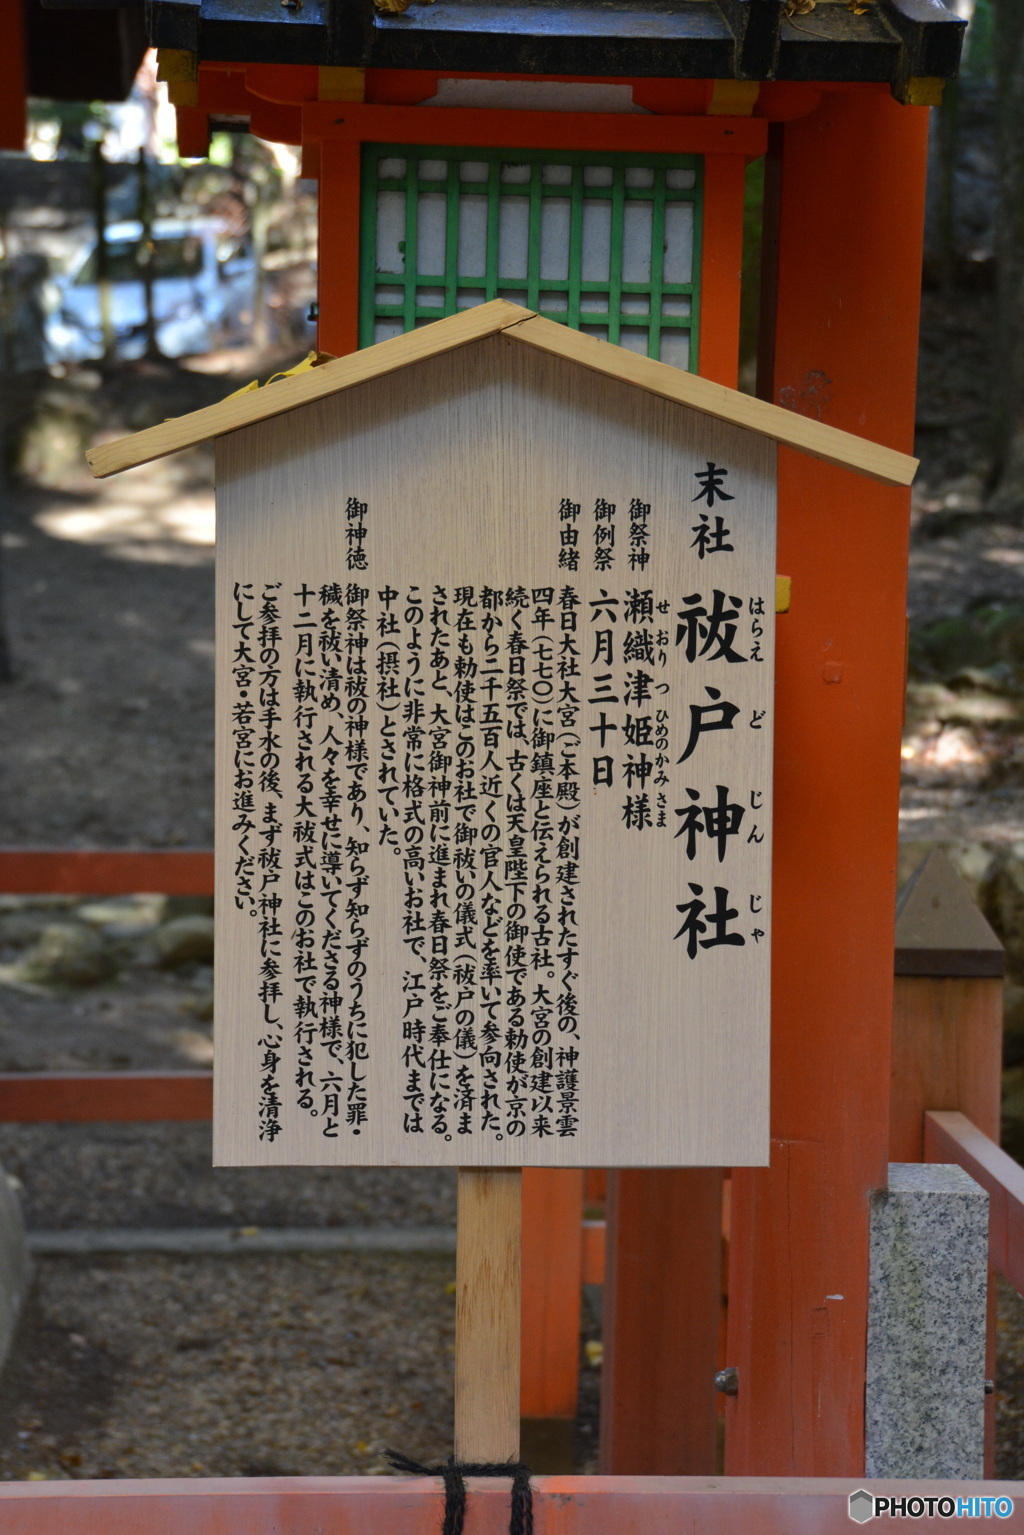 末社 祓戸神社
はらえ ど じん じゃ
御祭神 瀬織津姫神様
せ おり つ ひめのかみ さま
御例祭 六月三十日
御由緒 春日大社大宮(ご本殿)が創建されたすぐ後の、神護景雲
四年(七七〇)に御鎮座と伝えられる古社。大宮の創建以来
続く春日祭では、古くは天皇陛下の御使である勅使が京の
都から二千五百人近くの官人などを率いて参向された。
現在も勅使はこのお社で御祓いの儀式(祓戸の儀)を済ま
されたあと、大宮御神前に進まれ春日祭をご奉仕になる。
このように非常に格式の高いお社で、江戸時代までは
中社(摂社)とされていた。
御神徳 御祭神は祓の神様であり、知らず知らずのうちに犯した罪・
穢を祓い清め、人々を幸せに導いてくださる神様で、六月と
十二月に執行される大祓式はこのお社で執行される。
ご参拝の方は手水の後、まず祓戸神社に参拝し、心身を清浄
にして大宮・若宮にお進みください。
PHOTOHITO